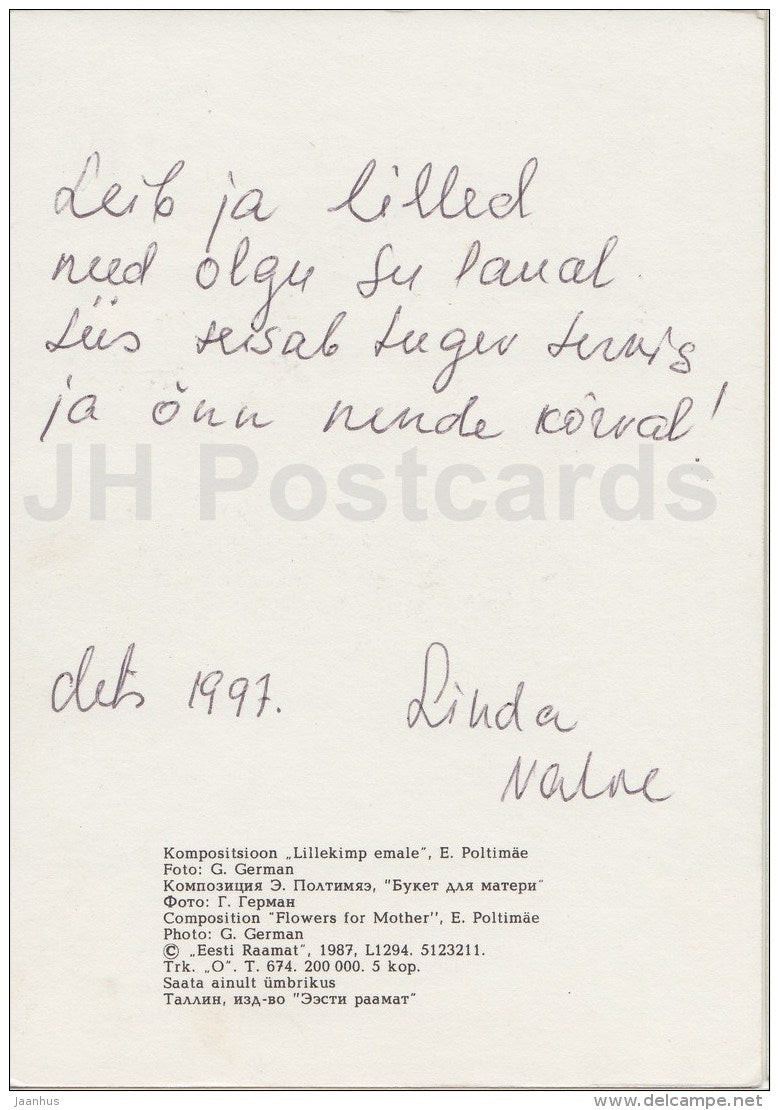 Leib ja lilled
need olgu su laual
siis seisab tugev tervis
ja õnn nende kõrval!
JH Postcards
dets 1997.
Linda
Valve
Kompositsioon „Lillekimp emale", E. Poltimäe
Foto: G. German
Композиция Э. Полтимяэ, "Букет для матери"
Фото: Г. Герман
Composition "Flowers for Mother", E. Poltimäe
Photo: G. German
© „Eesti Raamat", 1987, L1294. 5123211.
Trk. „O". T. 674. 200 000. 5 kop.
Saata ainult ümbrikus
Таллин, изд-во "Ээсти раамат"
jaanhus
www.delcampe.net